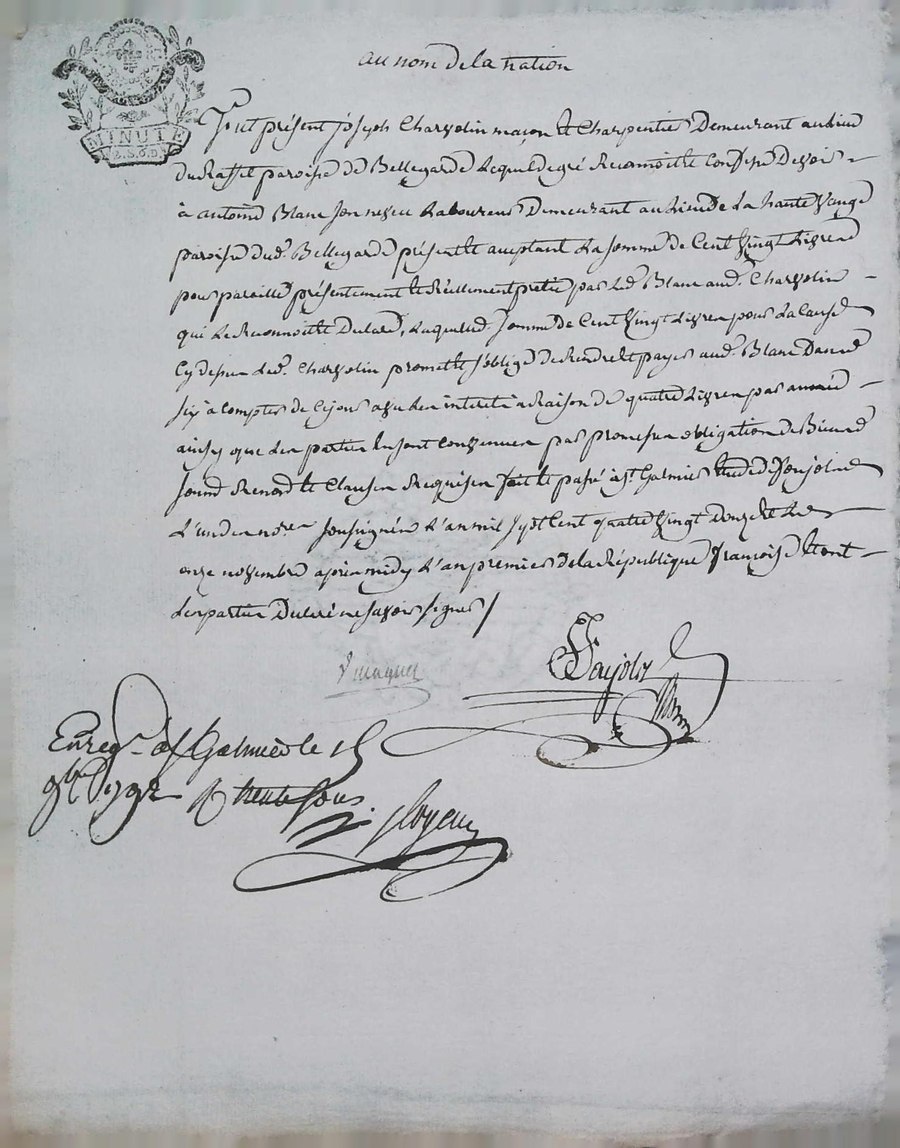 MINUTE
2. S. 6. D
au nom de la nation
fut présent joseph Charvolin maçon et Charpentier Demeurant au lieu
du paroisse de Bellegarde Lequel de gré Reconnoit et Confesse Devoir
à antoine Blanc son neveu Laboureur Demeurant au Lieu de La haute
paroisse dud. Bellegarde présent et acceptant La somme de Cent Vingt Livres
pour pareille présentement et Réellement pretée par Led. Blanc aud. Charvolin
qui Le Reconnoit Laquelle d. somme de Cent Vingt Livres pour La Cause
Cy dessus Led. Charvolin promet et s'oblige de Rendre et payer aud. Blanc Dans
six a Compter de Ce jour avec Les interets a Raison de quatre Livres par année
ainsy que Les parties En sont Convenues par promesses obligation de Biens
soum. Renon. et Clauses Requises fait et passé à St. Galmier Etude de Ponjolz
L'un des no.res soussignés L'an mil sept Cent quatre Vingt Douze et Le
onze novembre après midy L'an premier de la République françoise Et ont
Les parties Declaré ne savoir signer /
Ponjolz
Enreg. à St Galmier le
9bre 1792 R trente sous.